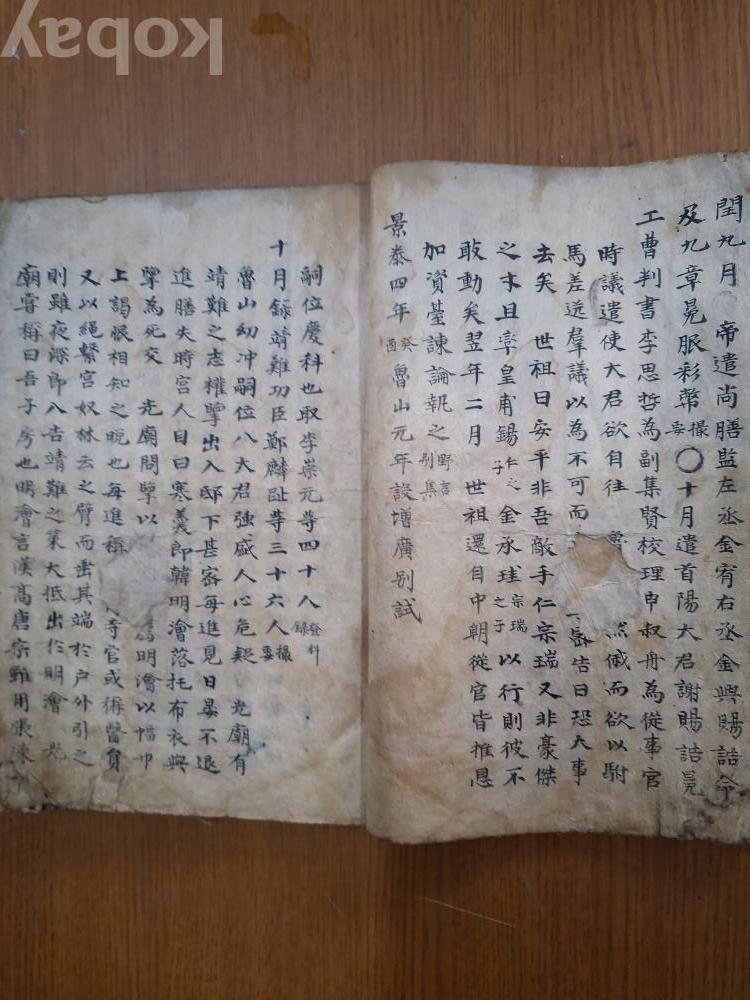 kobay
閏九月 帝遣尚膳監左丞金宥右丞金興賜誥命
及九章冕服彩幣撮要〇十月遣首陽大君謝賜誥冕
工曹判書李思哲為副集賢校理申叔舟為從事官
時議遣使大君欲自往 魯 然戚而欲以駙
馬差送羣議以為不可而 密告曰恐大事
去矣 世祖曰安平非吾敵手仁宗瑞又非豪傑
之才且率皇甫錫仁之子金承珪宗瑞之子以行則彼不
敢動矣翌年二月 世祖還自中朝從官皆推恩
加資臺諫論執之野言別集
景泰四年癸酉魯山元年設增廣別試
嗣位慶科也取李崇元等四十人登科錄
十月錄靖難功臣鄭麟趾等三十六人撮要
魯山幼冲嗣位八大君強盛人心危疑 光廟有
靖難之志權擥出入邸下甚密每進見日晏不退
進膳失時宮人目曰寒義郎韓明澮落托布衣與
擥為死交 光廟問擥以 明澮以幅巾
上謁恨相知之晚也每進稱 寺官或稱醫員
又以繩繫宮奴林云之臂而出其端於户外引之
則雖夜深即入告靖難之策大抵出於明澮 光
廟嘗稱曰吾子房也明澮言漢高唐宗雖用張陳